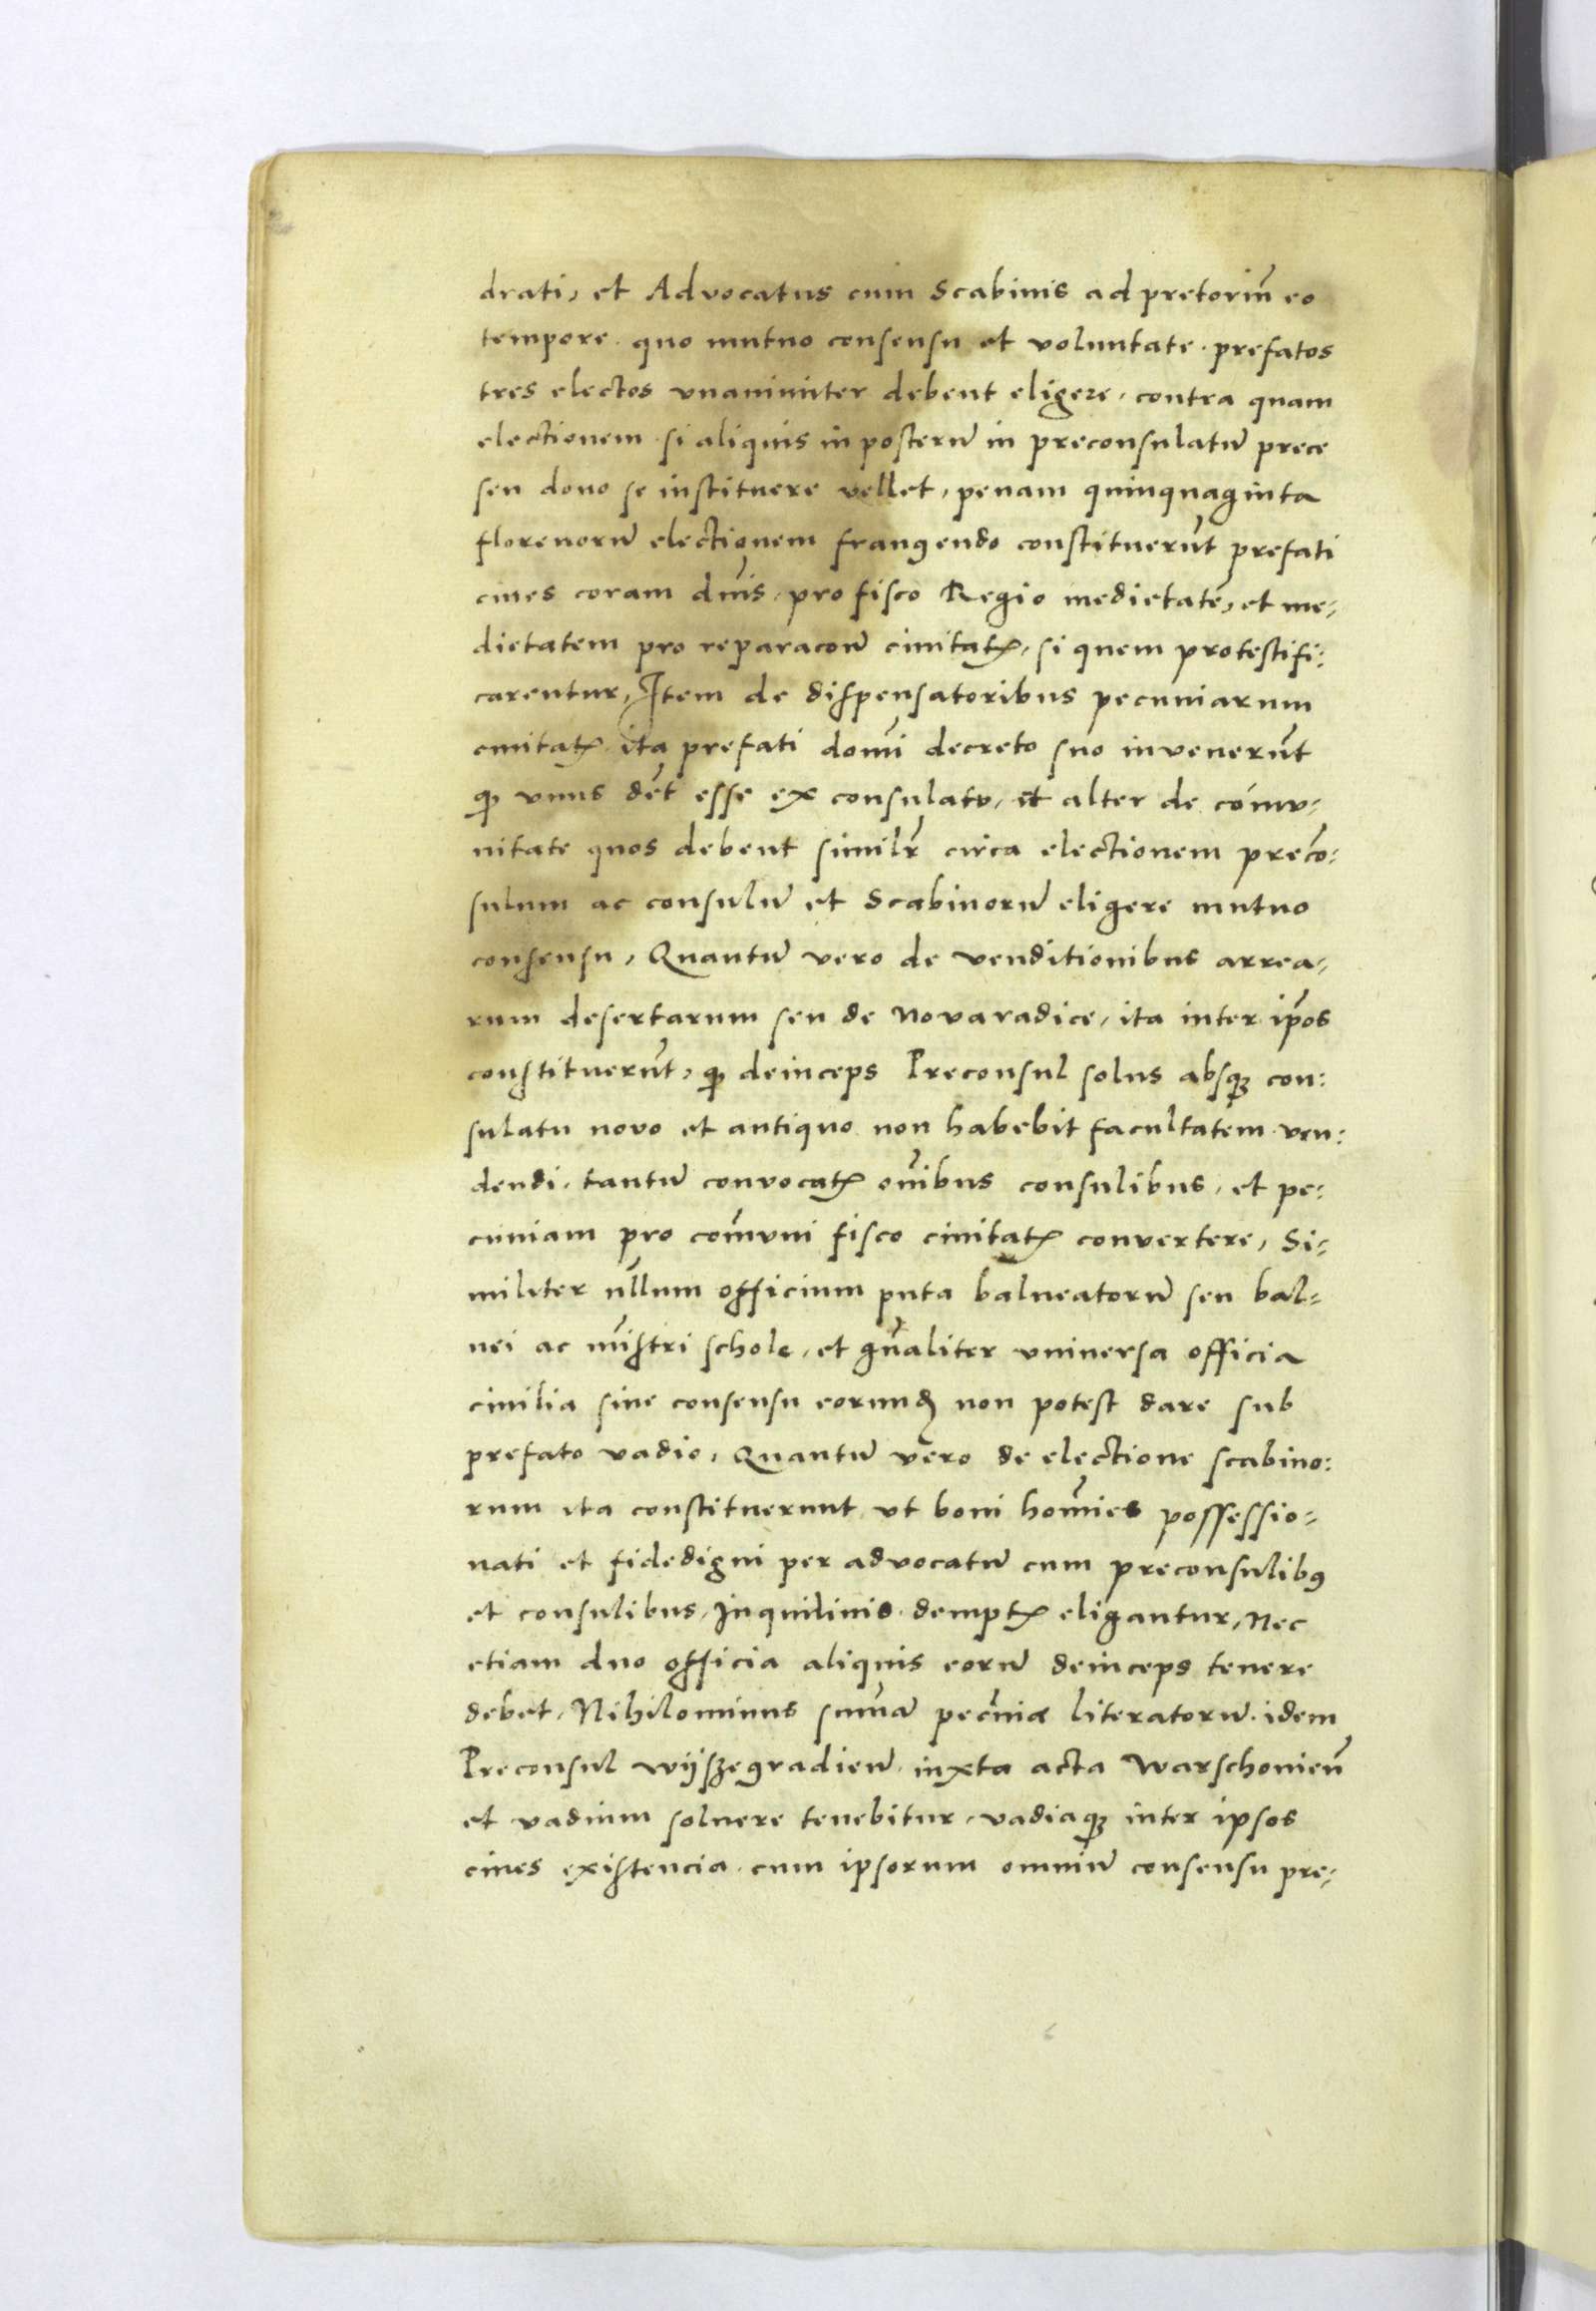 drati, et Advocatus cum Scabinis ad pretoriũ eo
tempore quo mutuo consensu et voluntate prefatos
tres electos vnanimiter debent eligere, contra quam
electionem si aliquis in posterũ in preconsulatũ prece
seu dono se instituere vellet, penam quinquaginta
florenorũ electionem frangendo constituerũt prefati
ciues coram dnĩs, pro fisco Regio medietatẽ, et me-
dietatem pro reparacoñ ciuitatꝭ, si quem protestifi:
carentur, Item de dispensatoribus pecuniarum
ciuitatꝭ ita prefati domĩ decreto suo invenerũt
ꝙ vnus dẽt esse ex consulatu, et alter de cõmu-
nitate quos debent similr̃ circa electionem precõ:
sulum ac consulũ et Scabinorũ eligere mutuo
consensu, Quantũ vero de venditionibus arrea-
rum desertarum seu de nova radice, ita inter ip̃os
constituerũt, ꝙ deinceps Preconsul solus absqꝫ con:
sulatu novo et antiquo non habebit facultatem ven:
dendi, tantũ convocatꝭ oĩbus consulibus, et pe:
cuniam pro com̃vni fisco ciuitatꝭ convertere, Si-
militer ullum officium puta balneatorũ seu bal-
nei ac mĩstri schole, et gñaliter vniuersa officia
ciuilia sine consensu eorundꝭ non potest dare sub
prefato vadio, Quantũ vero de electione scabino:
rum ita constituerunt vt boni homĩes possessio-
nati et fidedigni per advocatũ cum preconsulibꝰ
et consulibus, Inquilinis demptꝭ eligantur, Nec
etiam duo officia aliquis eorũ deinceps tenere
debet, Nihilominus sum̃a pecũia literatorũ idem
Preconsul wijszegradieñ iuxta acta Warschouieñ
et vadium soluere tenebitur, vadiaqꝫ inter ipsos
ciues existencia cum ipsorum omniũ consensu pre-